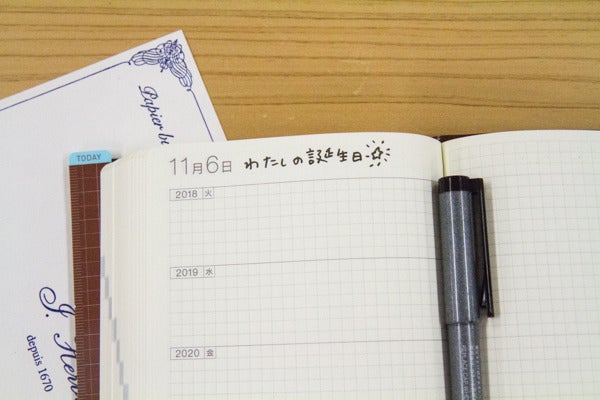 Papier
TODAY
11月6日 わたしの誕生日
2018 火
2019 水
2020 金
J.
depuis 1670